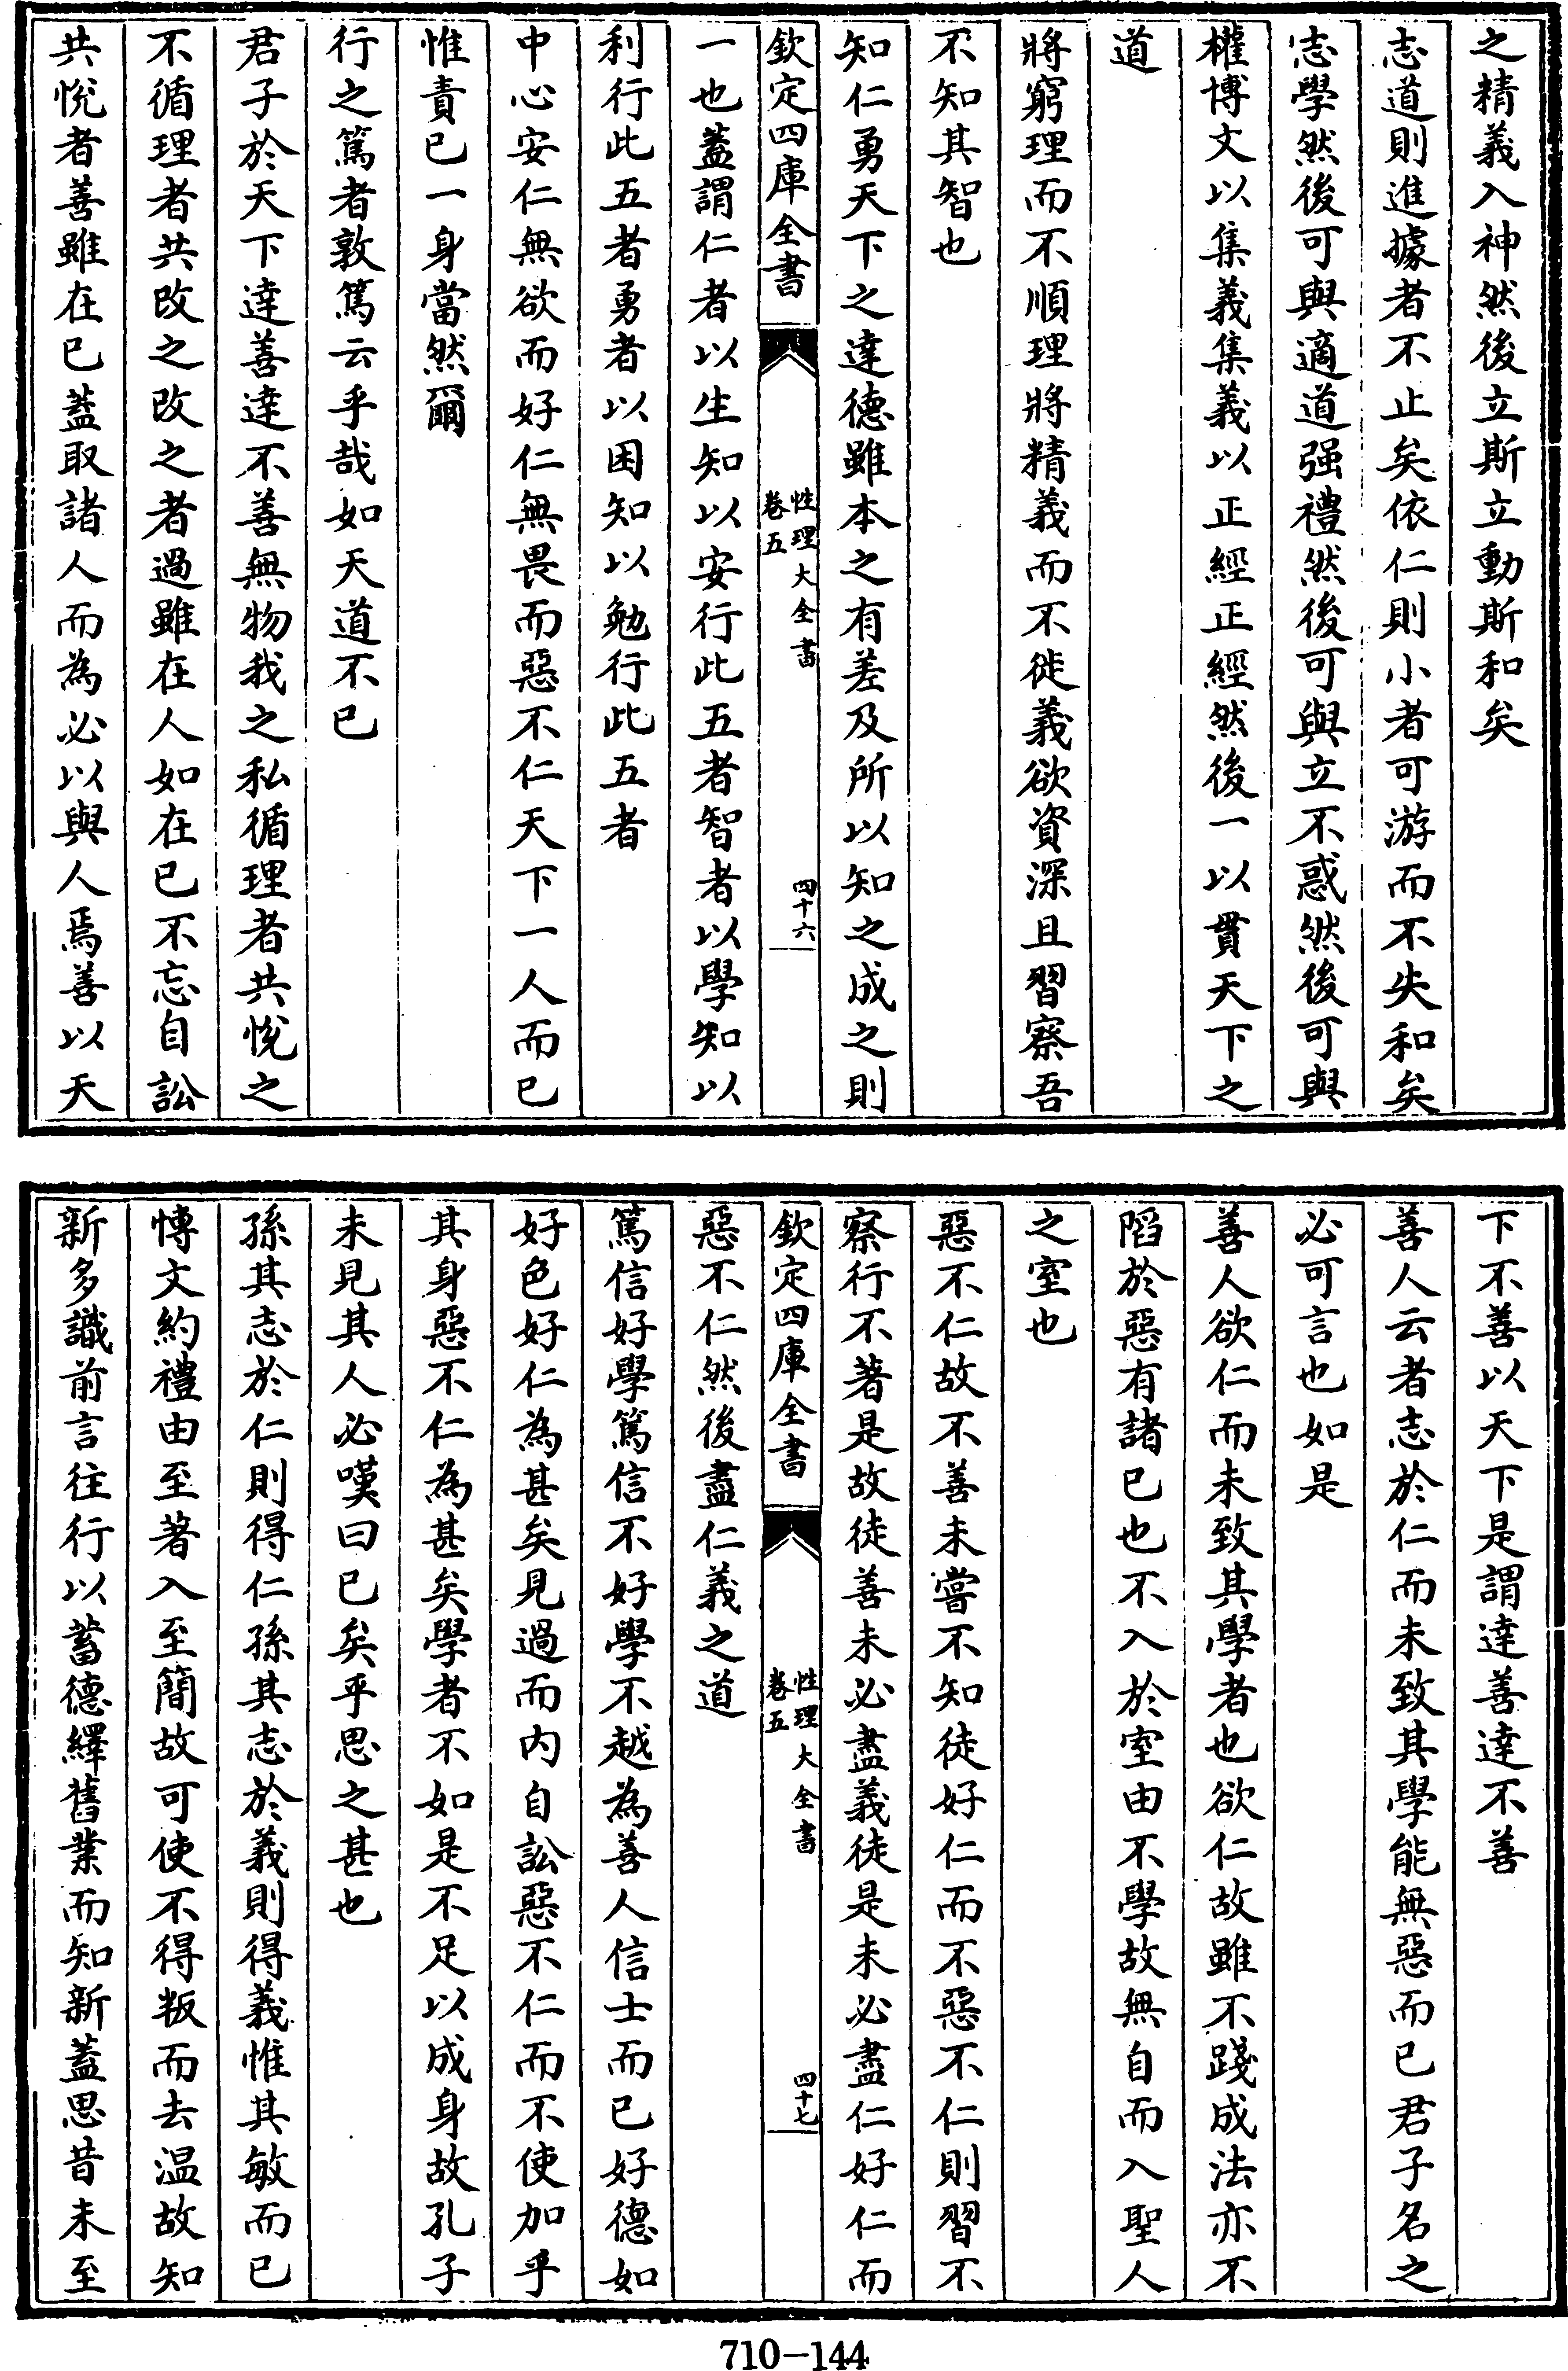 之精義入神然後立斯立動斯和矣
志道則進據者不止矣依仁則小者可游而不失和矣
志學然後可與適道强禮然後可與立不惑然後可與
權博文以集義集義以正經正經然後一以貫天下之
道
將窮理而不順理將精義而不徙義欲資深且習察吾
不知其智也
知仁勇天下之達德雖本之有差及所以知之成之則
欽定四庫全書
性理大全書
卷五
四十六
一也蓋謂仁者以生知以安行此五者智者以學知以
利行此五者勇者以困知以勉行此五者
中心安仁無欲而好仁無畏而惡不仁天下一人而已
惟責已一身當然爾
行之篤者敦篤云乎哉如天道不已
君子於天下達善達不善無物我之私循理者共悅之
不循理者共改之改之者過雖在人如在已不忘自訟
共悅者善雖在已蓋取諸人而為必以與人焉善以天
下不善以天下是謂達善達不善
善人云者志於仁而未致其學能無惡而已君子名之
必可言也如是
善人欲仁而未致其學者也欲仁故雖不踐成法亦不
陷於惡有諸已也不入於室由不學故無自而入聖人
之室也
惡不仁故不善未嘗不知徒好仁而不惡不仁則習不
察行不著是故徒善未必盡義徒是未必盡仁好仁而
欽定四庫全書
性理大全書
卷五
四十七
惡不仁然後盡仁義之道
篤信好學篤信不好學不越為善人信士而已好德如
好色好仁為甚矣見過而内自訟惡不仁而不使加乎
其身惡不仁為甚矣學者不如是不足以成身故孔子
未見其人必嘆曰已矣乎思之甚也
孫其志於仁則得仁孫其志於義則得義惟其敏而已
博文約禮由至著入至簡故可使不得叛而去温故知
新多識前言往行以蓄德繹舊業而知新蓋思昔未至
710-144